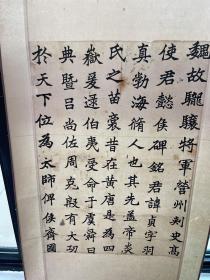 魏故驪驤將軍營州刺史高
使君懿侯碑銘君諱貞字羽
真勃海脩人也其先蓋帝炎
氏之苗裔昔在黃唐是為四
嶽爰逯伯夷受命于虞舜曰
典暨呂尚佐周克殷有大功
於天下位為太師俾侯齊國